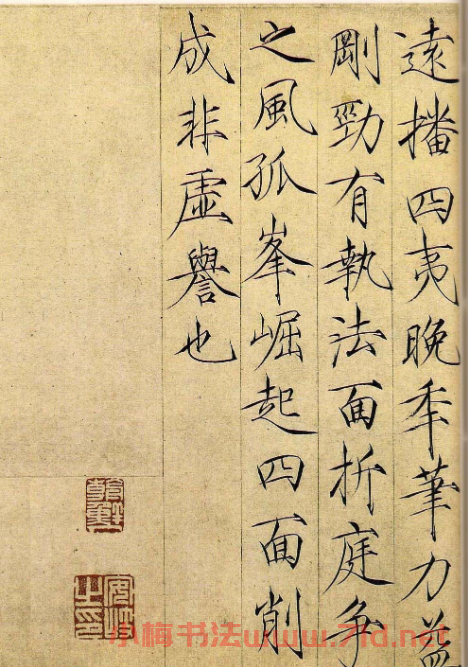 遠播四夷晚秊筆力益
剛勁有執法面折庭爭
之風孤峯崛起四面削
成非虛譽也
朝鮮
安岐之印
小梅书法